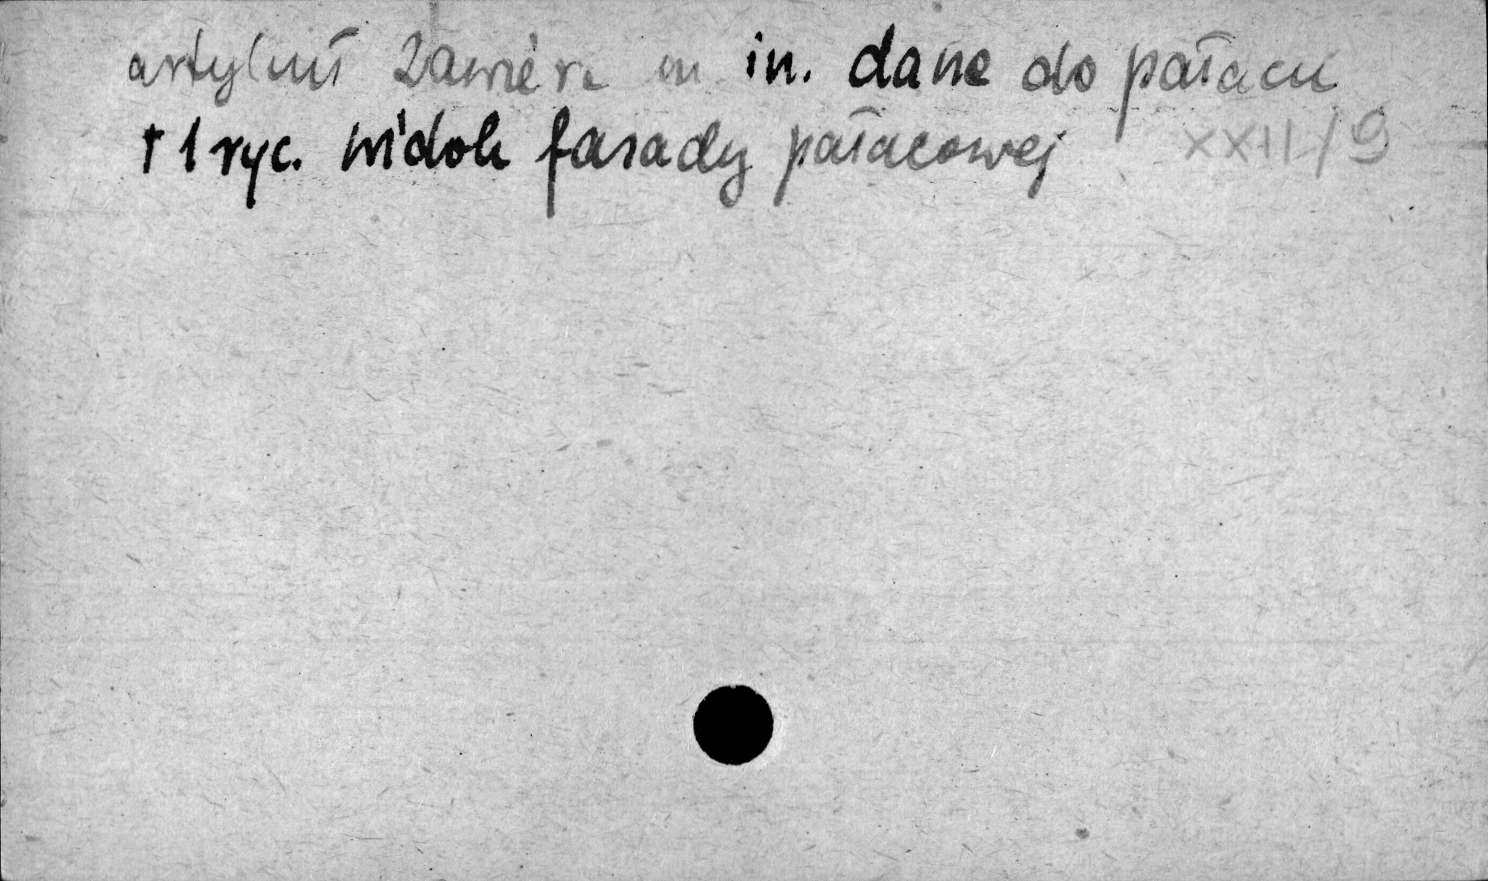 artykuł zawiera m in. dane do pałacu
+ 1 ryc. widok fasady pałacowej XXII/9